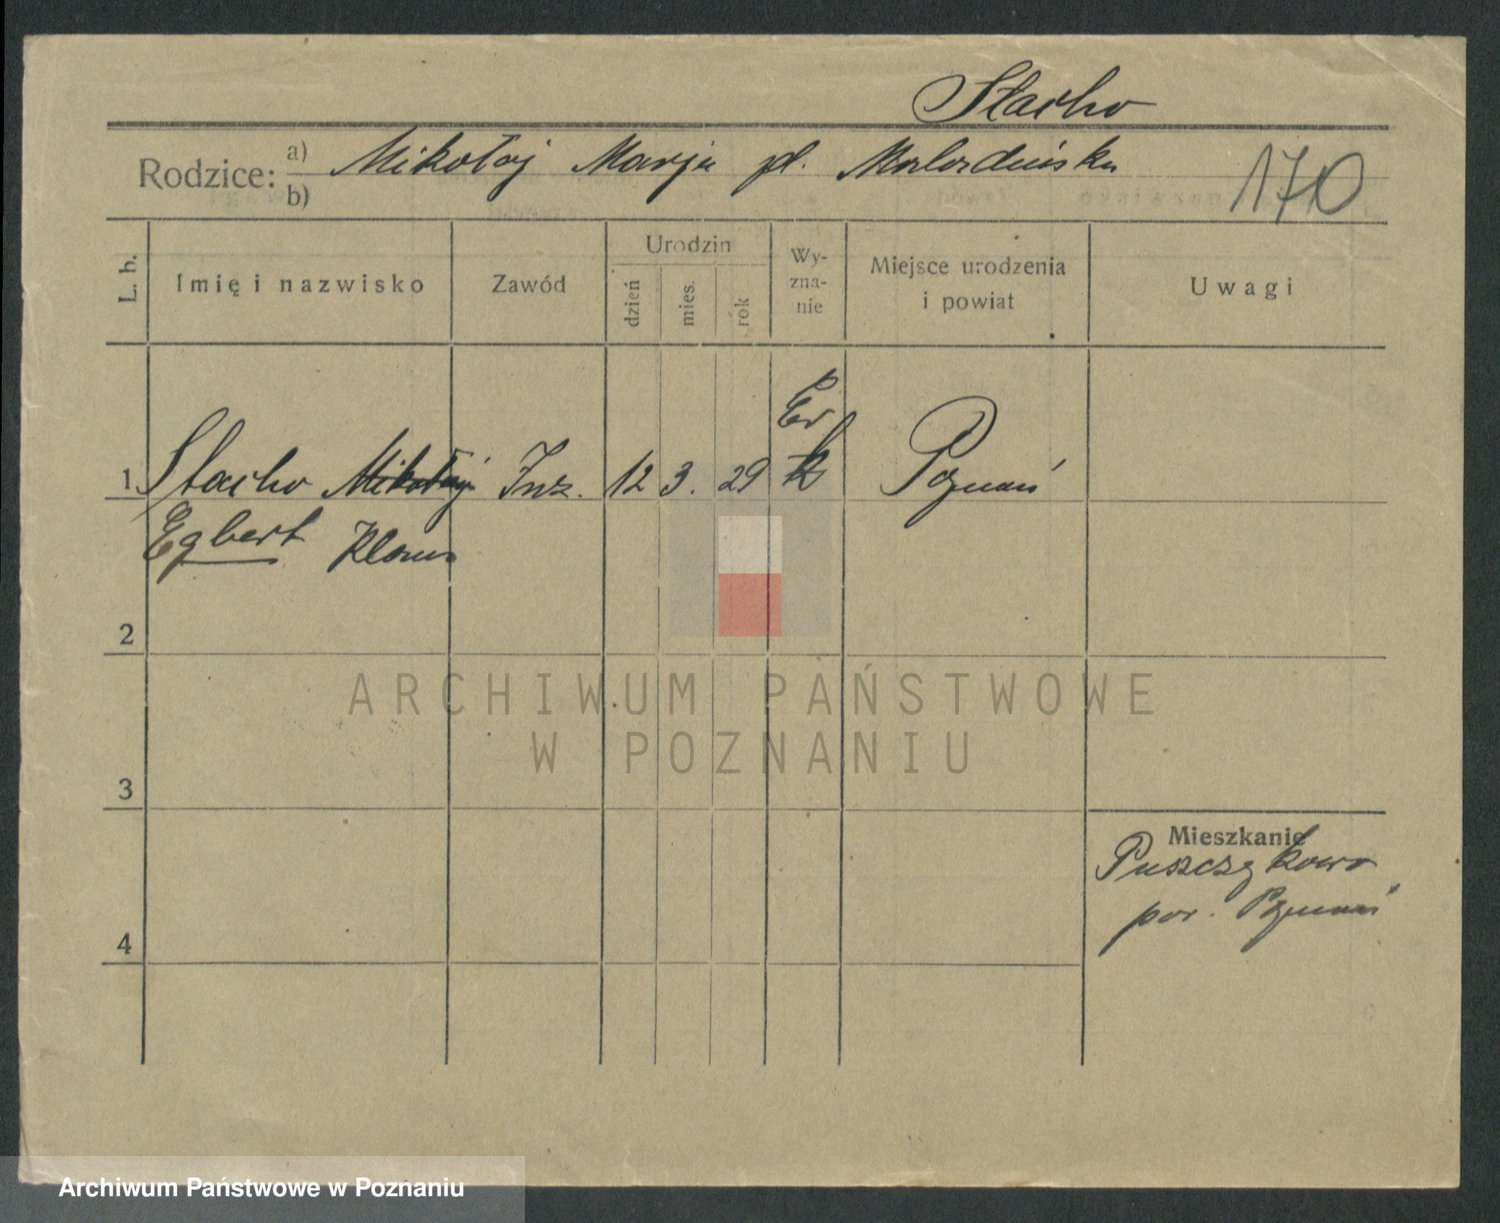 Stacho
Rodzice: a) Mikołaj Marja zd.
b)
170
L. b.
Imię i nazwisko
Zawód
Urodzin
dzień
mies.
rok
Wy-
zna-
nie
Miejsce urodzenia
i powiat
Uwagi
Ew
1 Stacho Mikołaj Inż. 12 3. 29 k Poznań
Egbert Klaus
2
3
4
Mieszkanie
Puszczykowo
pow. Poznań
ARCHIWUM PAŃSTWOWE
W POZNANIU
Archiwum Państwowe w Poznaniu